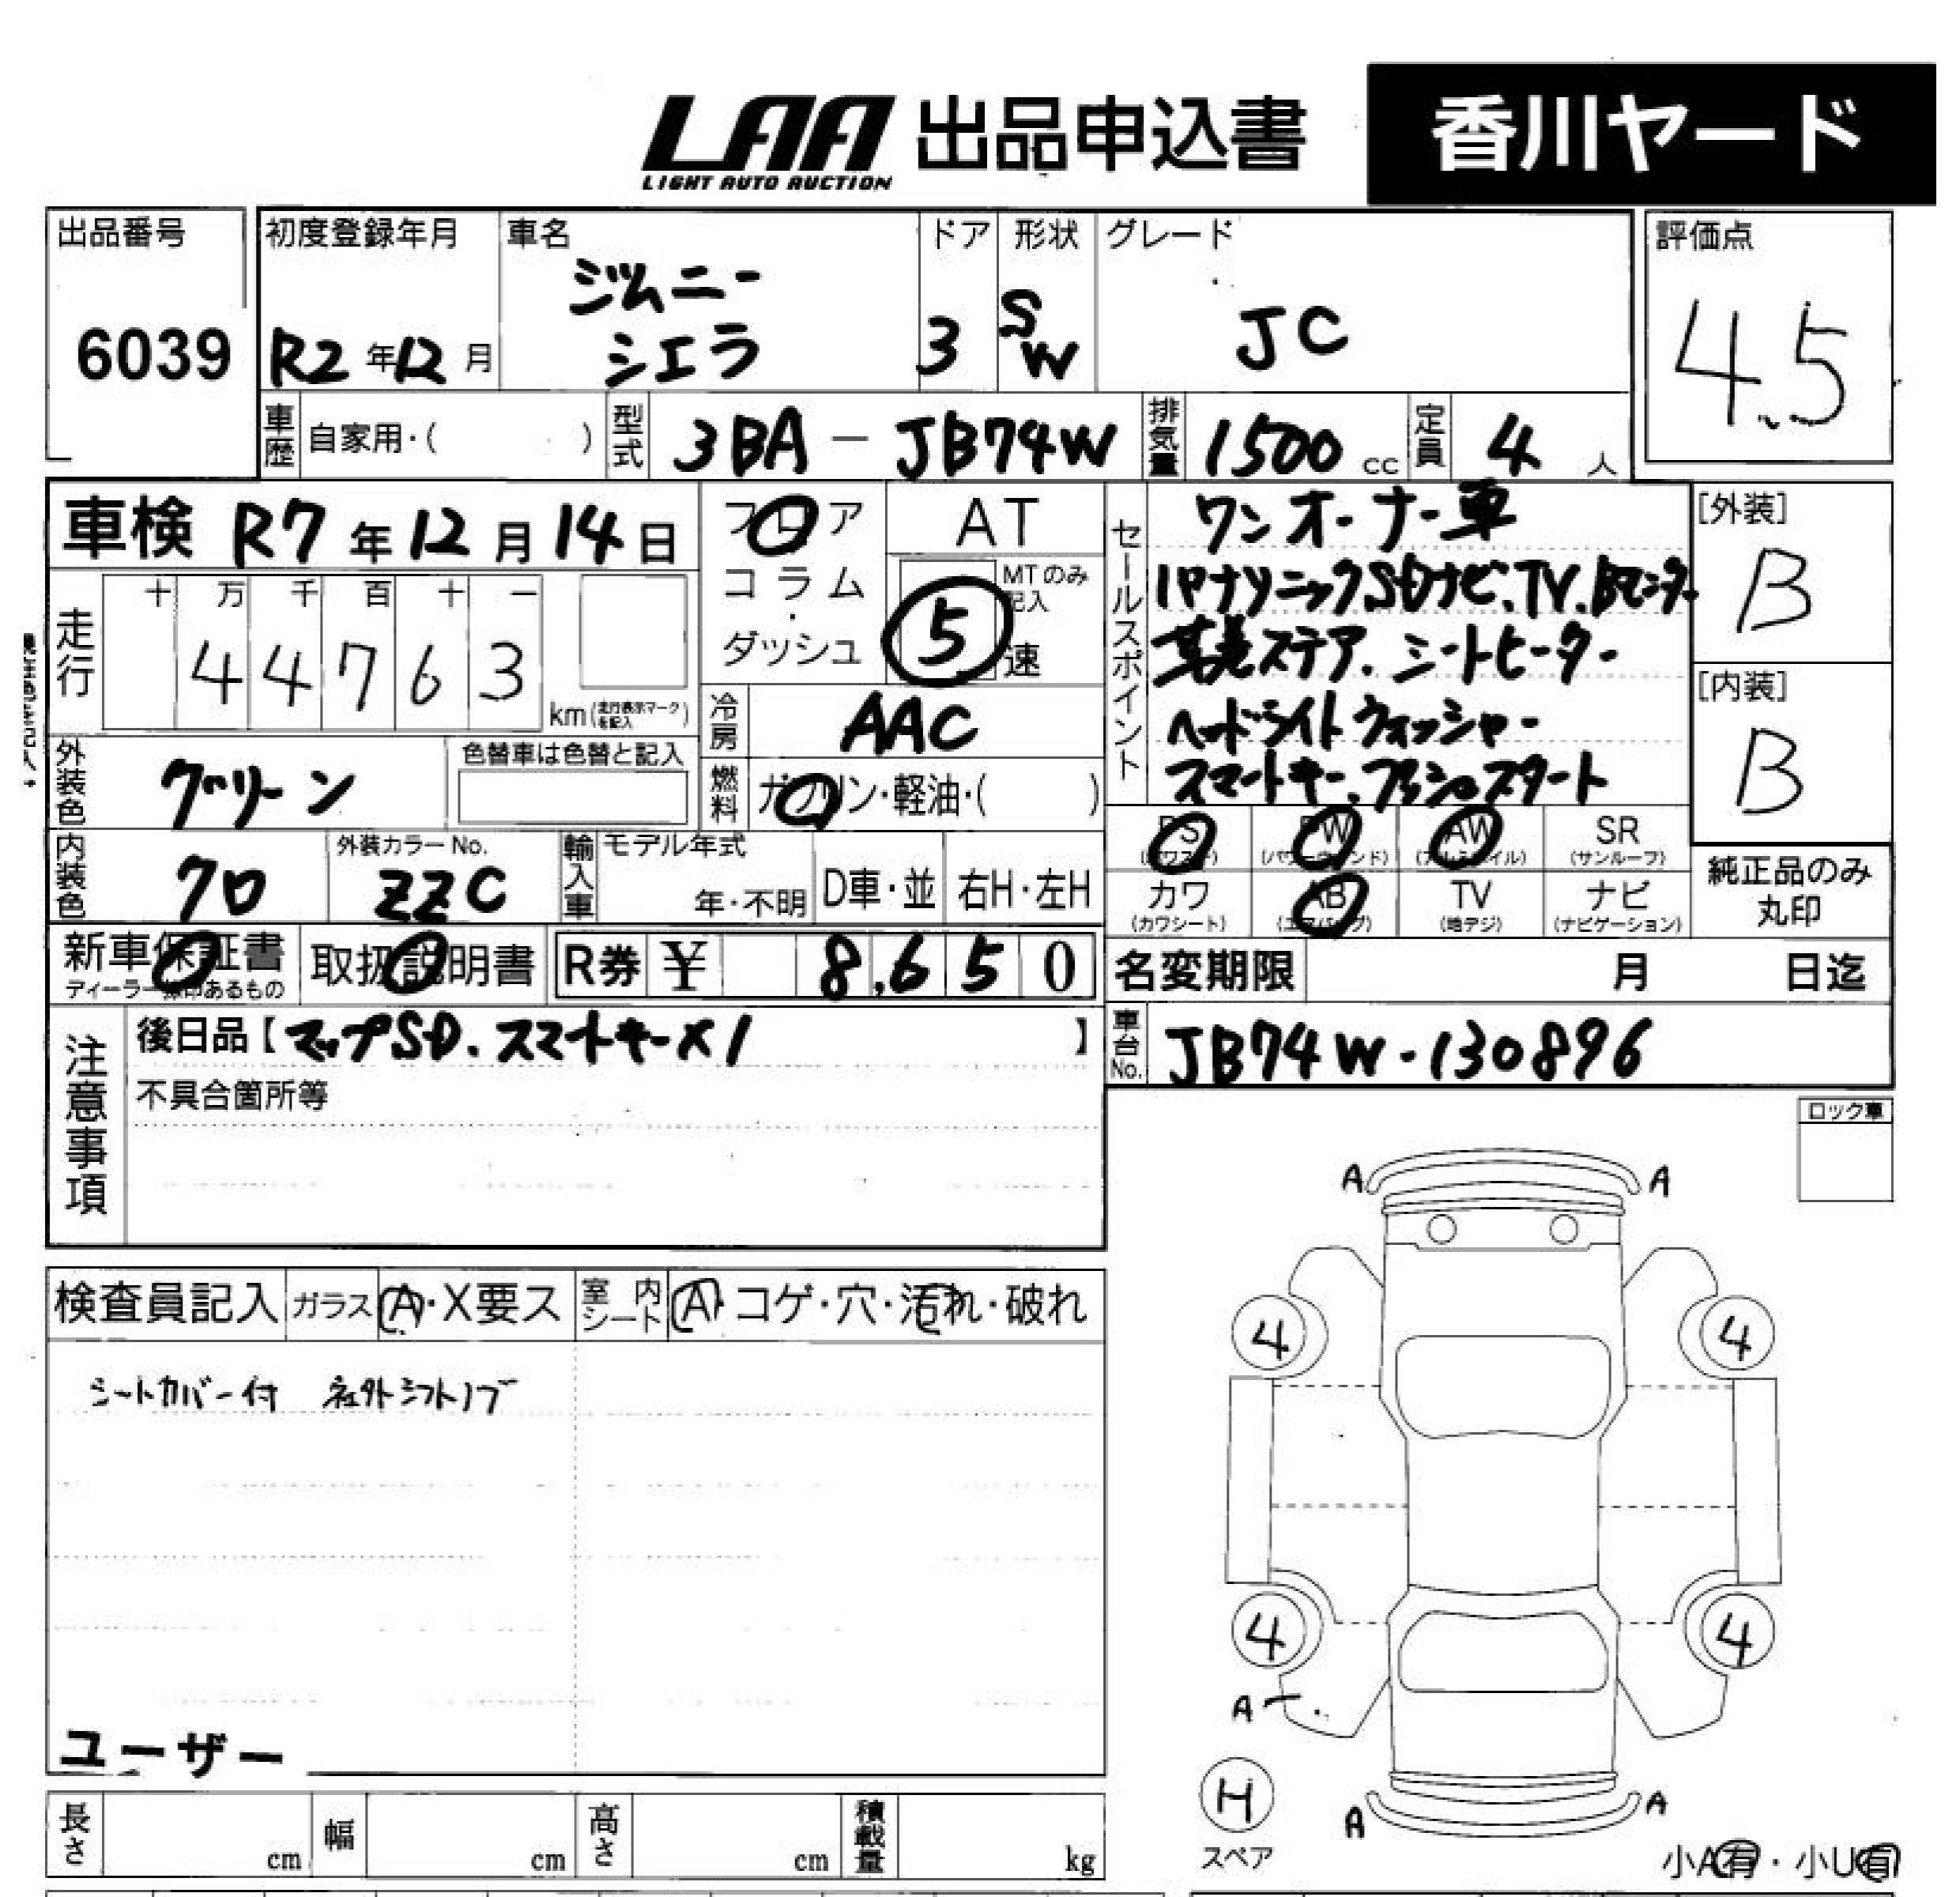 LAA 出品申込書 香川ヤード
LIGHT AUTO AUCTION
出品番号 初度登録年月 車名 ドア 形状 グレード 評価点
6039 R2年12月 ジムニー シエラ 3 SW JC 4.5
車歴 自家用・( ) 型式 3BA-JB74W 排気量 1500 cc 定員 4 人
車検 R7年12月14日
フロア AT
コラム・ダッシュ 5 速 MTのみ記入
走行 十 万 千 百 十 一
4 4 7 6 3 km(走行表示マークを記入)
冷房 AAC
外装色 グリーン 色替車は色替と記入
燃料 ガソリン・軽油・( )
内装色 クロ 外装カラーNo. ZZC 輸入車 モデル年式 年・不明 D車・並 右H・左H
セールスポイント
ワンオーナー車
パナソニックSDナビ、TV、Bモニター
革巻ステア、シートヒーター
ヘッドライトウォッシャー
スマートキー、プッシュスタート
[外装] B
[内装] B
PS (パワステ) PW (パワーウィンド) AW (アルミホイル) SR (サンルーフ)
カワ (カワシート) AB (エアバッグ) TV (地デジ) ナビ (ナビゲーション)
純正品のみ丸印
新車保証書 取扱説明書 R券 ¥ 8,650
ディーラー捺印あるもの
名変期限 月 日迄
注意事項
後日品【マップSD、スマートキー×1】
車台No. JB74W-130896
不具合箇所等
ロック車
A A
検査員記入 ガラス A・X要ス 室内シート A コゲ・穴・汚れ・破れ
シートカバー付 社外シフトノブ
4 4
4 4
A
ユーザー
H
スペア
A A
長さ cm 幅 cm 高さ cm 積載量 kg
小A有・小U有